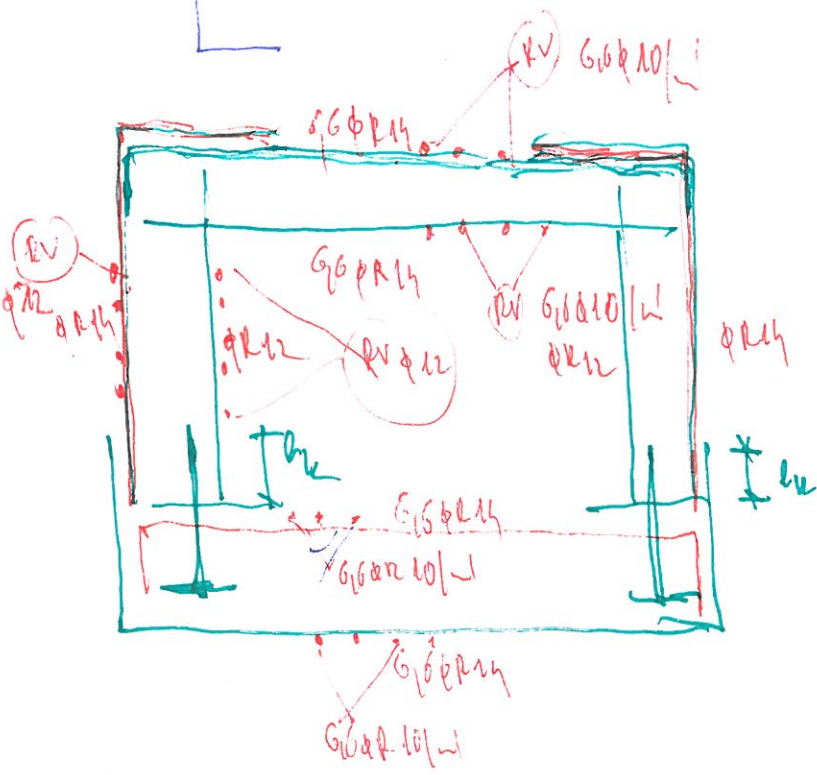 RV 6,6ϕ10/m'
6,6ϕR14
RV
ϕ12
ϕR14
6,6ϕR14
RV 6,6ϕ10/m'
ϕR12
ϕR12
RVϕ12
ϕR14
lk
lk
6,6ϕR14
6,6ϕR10/m'
6,6ϕR14
6,6ϕR10/m'